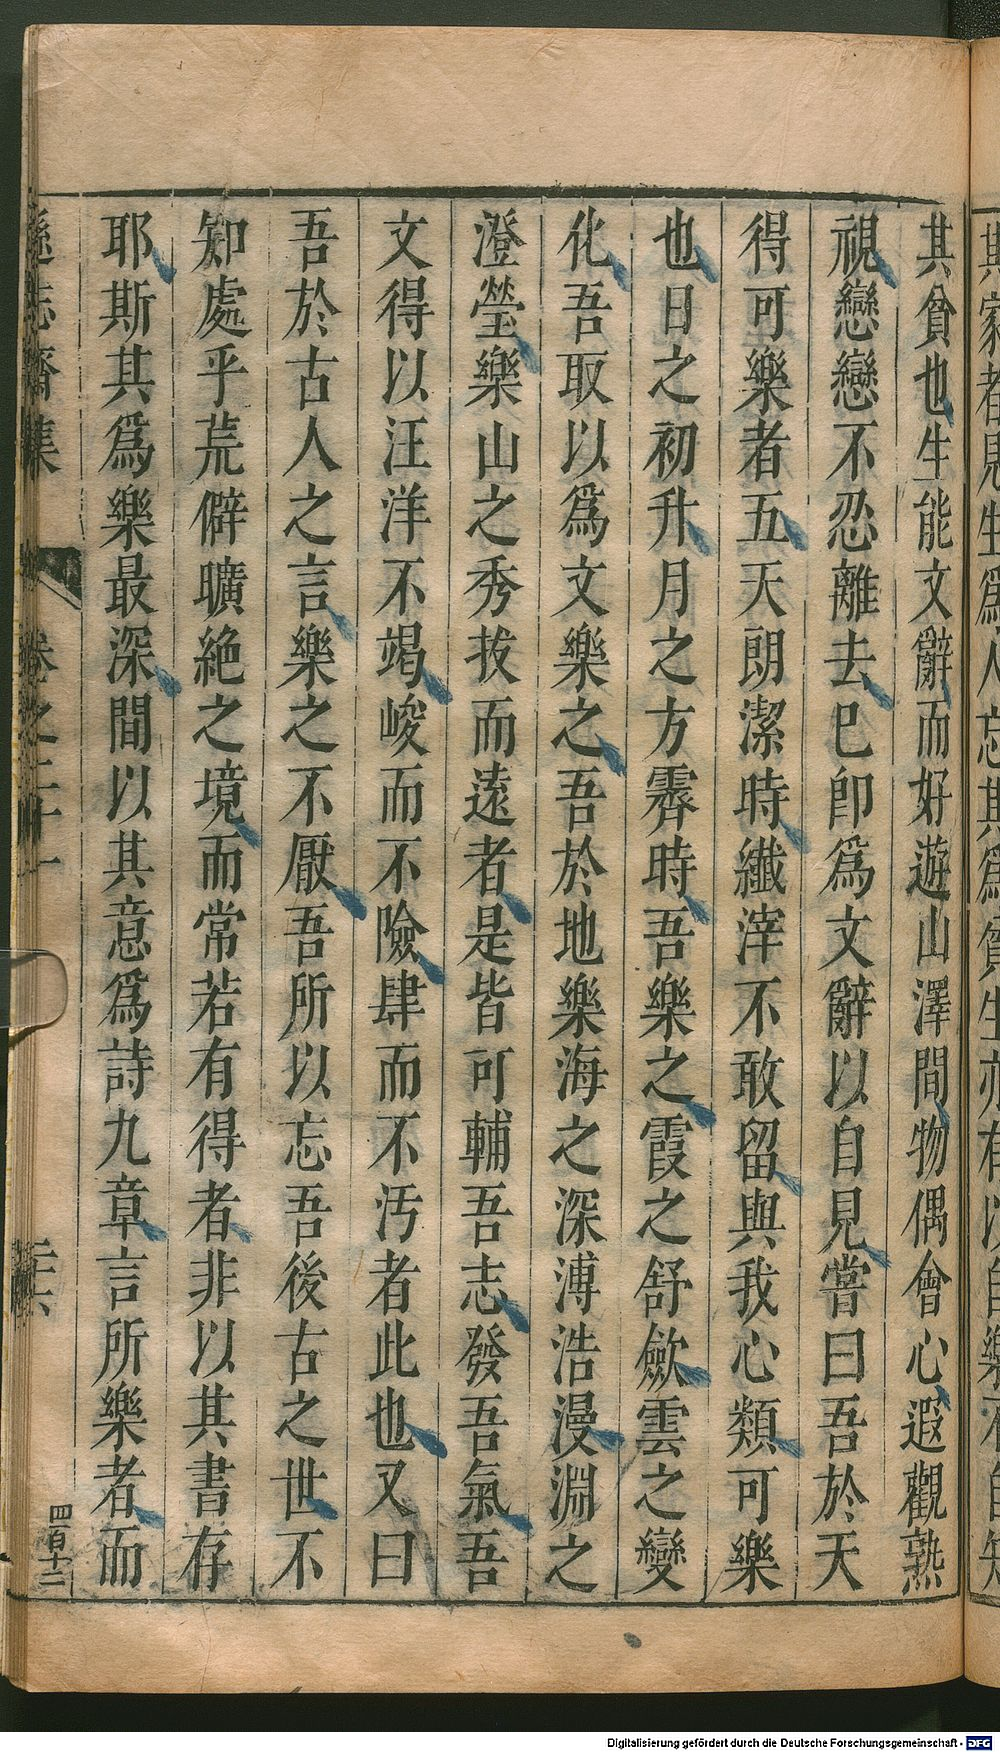 其貧也生能文辭而好遊山澤間物偶會心遐觀熟
視戀戀不忍離去已卽爲文辭以自見嘗曰吾於天
得可樂者五天朗潔時纖滓不敢留與我心類可樂
也日之初升月之方霽時吾樂之霞之舒歛雲之變
化吾取以爲文樂之吾於地樂海之深溥浩漫淵之
澄瑩樂山之秀拔而遠者是皆可輔吾志發吾氣吾
文得以汪洋不竭峻而不險肆而不汚者此也又曰
吾於古人之言樂之不厭吾所以忘吾後古之世不
知處乎荒僻曠絶之境而常若有得者非以其書存
耶斯其爲樂最深間以其意爲詩九章言所樂者而
遜志齋集
卷之二十一
二六
四百十二
Digitalisierung gefördert durch die Deutsche Forschungsgemeinschaft - DFG